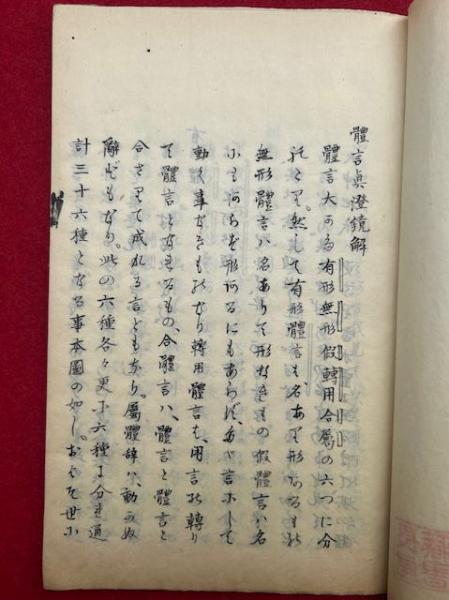 體言眞澄鏡解
體言大かた有形無形假轉用合屬の六つに分
托くり。然して有形體言も、名あり形あるもの
無形體言ハ名ありて形なきもの假體言ハ名
にもあらず形あるにもあらず、たゞ言にして
動く事なきものなり轉用體言も、用言の轉り
て體言となれるもの、合體言ハ、體言と體言と
合さりて成れる言どもなり。屬體辭ハ、動かぬ
辭どもなり。此の六種各々更に六種に分ち通
計三十六種となる事本圖の如し。おほを世に